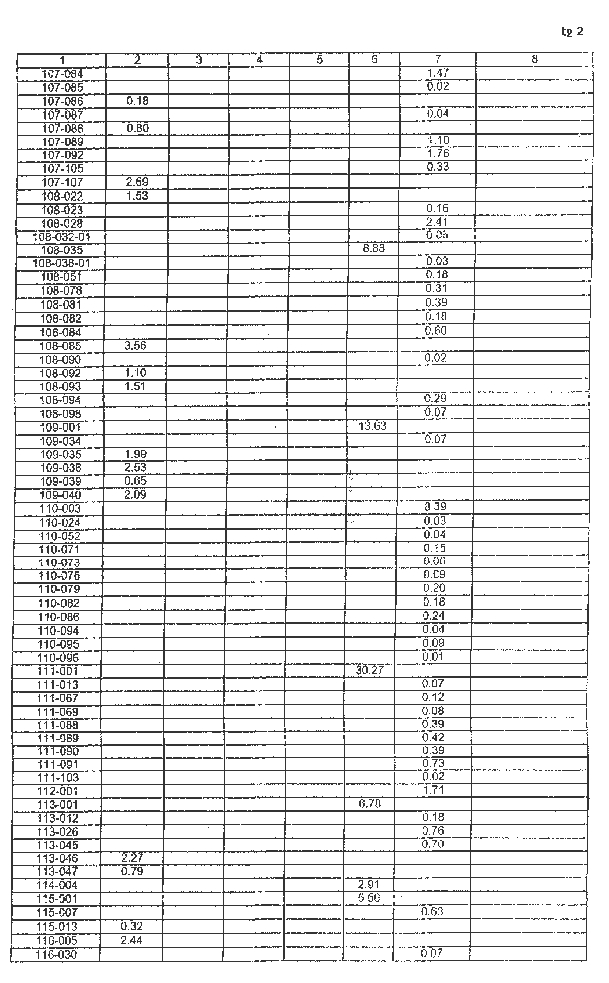 tp 2
1 2 3 4 5 6 7 8
107-084 1.47
107-085 0.02
107-086 0.18
107-087 0.04
107-088 0.80
107-089 1.10
107-092 1.76
107-105 0.33
107-107 2.69
108-022 1.53
108-023 0.16
108-028 2.41
108-032-01
108-035 8.83
108-036-01 0.03
108-051 0.18
108-078 0.31
108-081 0.39
108-082 0.18
108-084 0.60
108-085 3.56
108-090 0.02
108-092 1.10
108-093 1.51
108-094 0.29
108-098 0.07
109-001 13.63
109-034 0.07
109-035 1.99
109-038 2.53
109-039 0.65
109-040 2.09
110-003 3.39
110-024 0.03
110-052 0.04
110-071 0.15
110-073
110-076 0.09
110-079 0.20
110-082 0.18
110-086 0.24
110-094 0.04
110-095 0.09
110-096 0.01
111-001 30.27
111-013 0.07
111-067 0.12
111-069 0.08
111-088 0.39
111-089 0.42
111-090 0.39
111-091 0.73
111-103 0.02
112-001 1.71
113-001 6.78
113-012 0.18
113-026 0.76
113-045 0.70
113-046 2.27
113-047 0.79
114-004 2.91
115-001
115-007 0.63
115-013 0.32
116-005 2.44
116-030 0.07